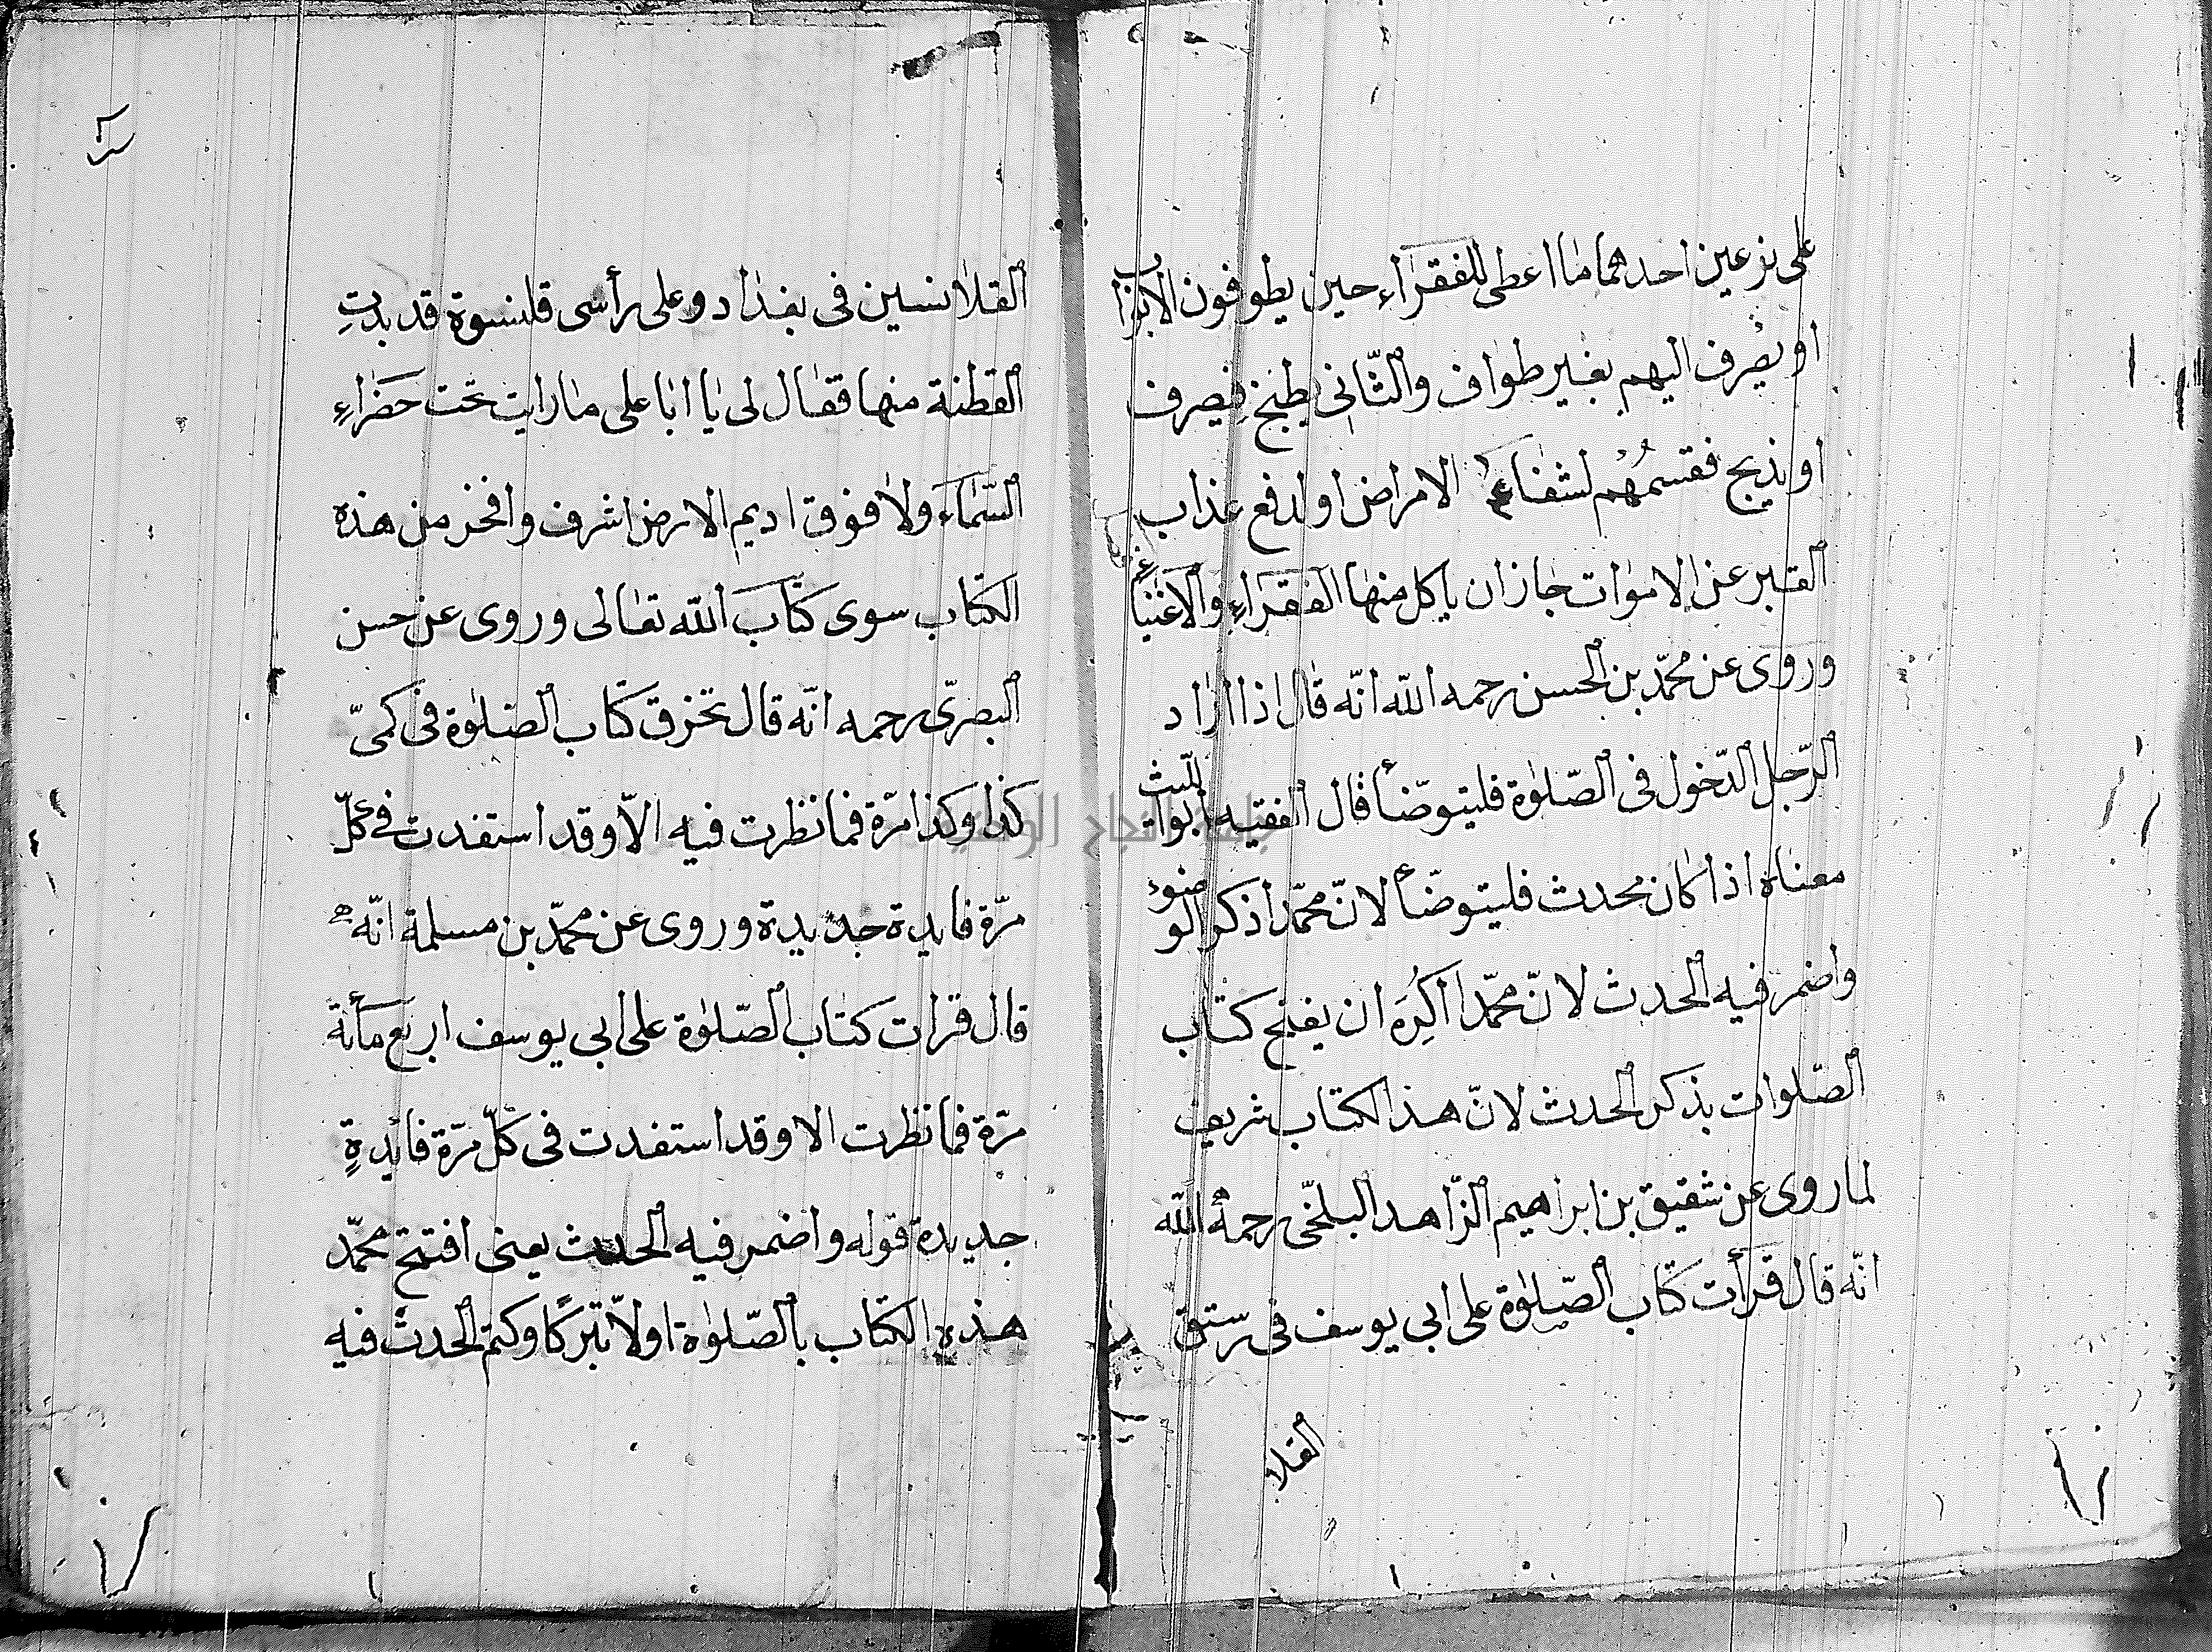 على نوعين احدهما ما اعطى للفقراء حين يطوفون الابواب
او يصرف اليهم بغير طواف والثاني يطبخ فيصرف
او يذبح فقسمهم لشفاء الامراض او لدفع عذاب
القبر عن الاموات جاز ان ياكل منها الفقراء والاغنيا
وروى عن محمّد بن الحسن رحمه الله انّه قال اذا اراد
الرّجل الدّخول فى الصّلوة فليتوضّأ قال الفقيه ابواللّيث
معناه اذا كان محدث فليتوضّأ لانّ محمّدا ذكر الوضوء
واضمر فيه الحدث لانّ محمّدا اكره ان يفتح كتاب
الصّلوات بذكر الحدث لانّ هذا الكتاب شريف
لما روى عن شقيق بن ابراهيم الزّاهد البلخّى رحمة اللّه
انّه قال قرأت كتاب الصّلوة على ابى يوسف فى رستق
القلا
القلانسين فى بغداد وعلى رأسى قلنسوة قد بدت
القطنة منها فقال لى يا ابا على ما رايت تحت خضراء
السّماء ولا فوق اديم الارض اشرف وافخر من هذه
الكتاب سوى كتاب اللّه تعالى وروى عن حسن
البصرىّ رحمه انّه قال تخرق كتاب الصلوة فى كمىّ
كذا وكذا مرّة فما نظرت فيه الاّ وقد استفدت فى كلّ
مرّة فايدة جديدة وروى عن محمّد بن مسلمة انّه
قال قرات كتاب الصّلوة على ابى يوسف اربع مأئة
مرّة فما نظرت الا وقد استفدت فى كلّ مرّة فائدة
جديدة قوله واضمر فيه الحدث يعنى افتتح محمّد
هذه الكتاب بالصّلوة اولاّ تبركا وكتم الحدث فيه